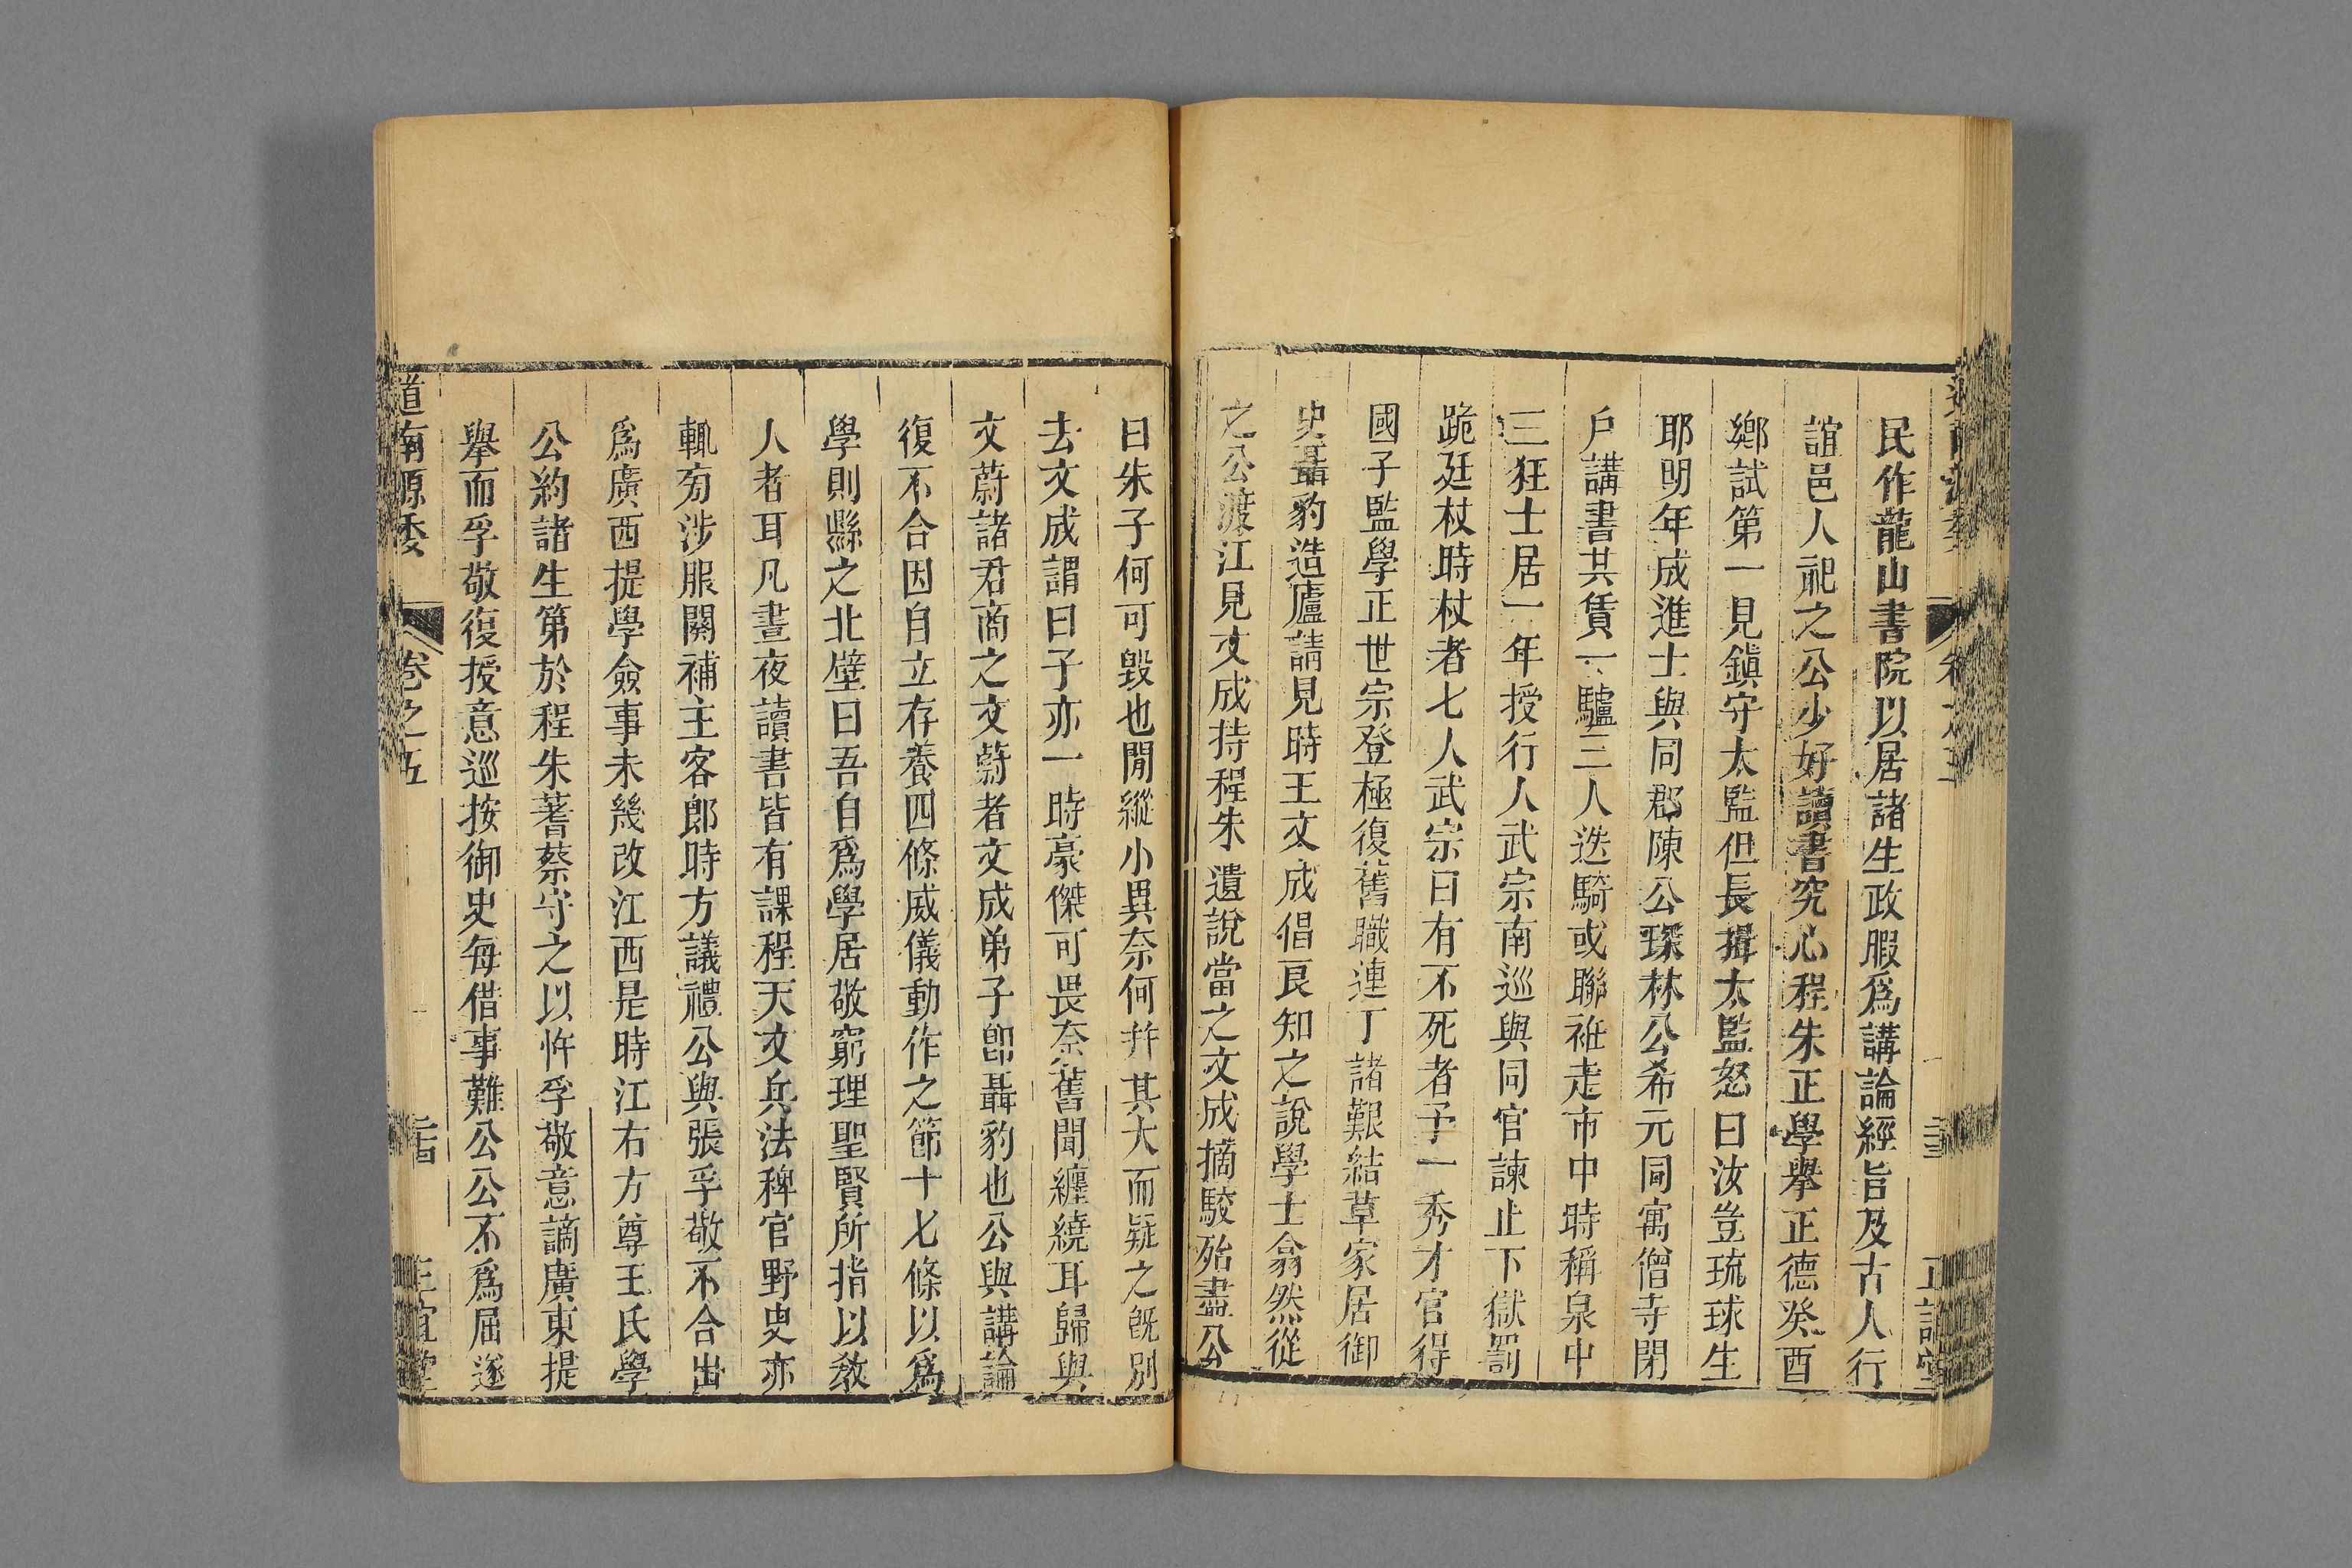 民作龍山書院以居諸生政暇爲講論經旨及古人行
誼邑人祀之公少好讀書究心程朱正學擧正德癸酉
鄉試第一見鎮守太監但長揖太監怒曰汝豈琉球生
耶明年成進士與同郡陳公琛林公希元同寓僧寺閉
戶講書其賃一驢三人迭騎或聯袵走市中時稱泉中
三狂士居一年授行人武宗南巡與同官諫止下獄罰
跪廷杖時杖者七人武宗曰有不死者予一秀才官得
國子監學正世宗登極復舊職連丁諸艱結草家居御
史聶豹造廬請見時王文成倡良知之說學士翕然從
之公渡江見文成持程朱遺說當之文成摘駮殆盡公
曰朱子何可毀也閒縱小異奈何幷其大而疑之旣別
去文成謂曰子亦一時豪傑可畏奈舊聞纏繞耳歸與
文蔚諸君商之文蔚者文成弟子卽聶豹也公與講論
復不合因自立存養四條威儀動作之節十七條以爲
學則縣之北壁曰吾自爲學居敬窮理聖賢所指以教
人者耳凡晝夜讀書皆有課程天文兵法稗官野史亦
輒旁涉服闋補主客郎時方議禮公與張孚敬不合出
爲廣西提學僉事未幾改江西是時江右方尊王氏學
公約諸生第於程朱蓍蔡守之以忤孚敬意謫廣東提
擧而孚敬復授意巡按御史每借事難公公不爲屈遂
道南源委 卷之五 二十四 正誼堂